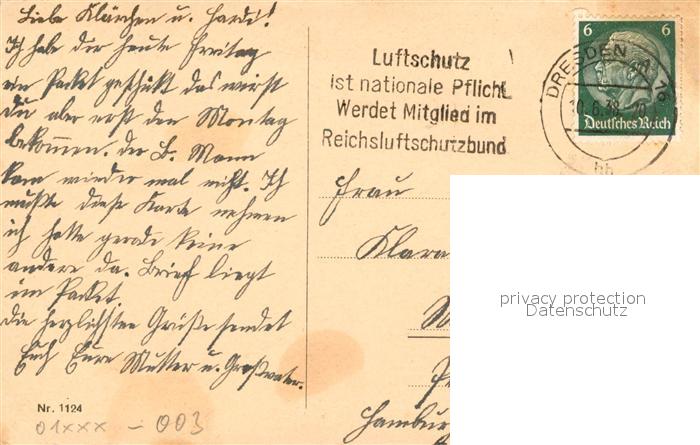 Liebe Klärchen u. Hardi!
Ich habe dir heute Freitag
ein Packet geschikt das wirst
du aber erst den Montag
bekommen. der B. Mann
kam wieder mal nicht. Ich
mußte diese Karte nehmen
ich hatte gerade keine
andere da. Brief liegt
im Packet.
die herzlichsten Grüße sendet
Euch Eure Mutter u. Großvater.
Nr. 1124
01xxx - 003
Luftschutz
ist nationale Pflicht
Werdet Mitglied im
Reichsluftschutzbund
DRESDEN A
10.6.38
6 6
Deutsches Reich
Frau
Klara
Hamburg
privacy protection
Datenschutz